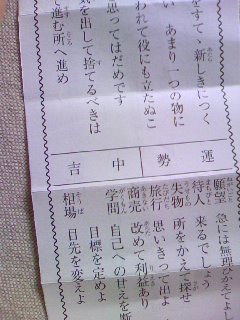 をすて、新しきにつく
い あまり一つの物に
われて役にも立たぬこ
思ってはだめです
気を出して捨てるべきは
進む所へ進め
運勢
中吉
願望 急には無理ひかえてよし
待人 来るでしょう
失物 所をかえて探せ
旅行 思いきって出よ
商売 改めて利益あり
学問 自己への甘えを断
目標を定めよ
相場 目先を変えよ